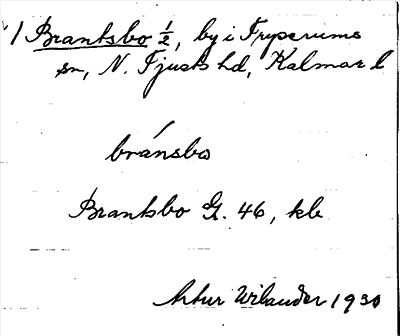 1 Brantsbo ½, by i Tryserums
sn, N. Tjusts hd, Kalmar l
bránsbo
Brantsbo G. 46, kb
Artur Wilander 1930